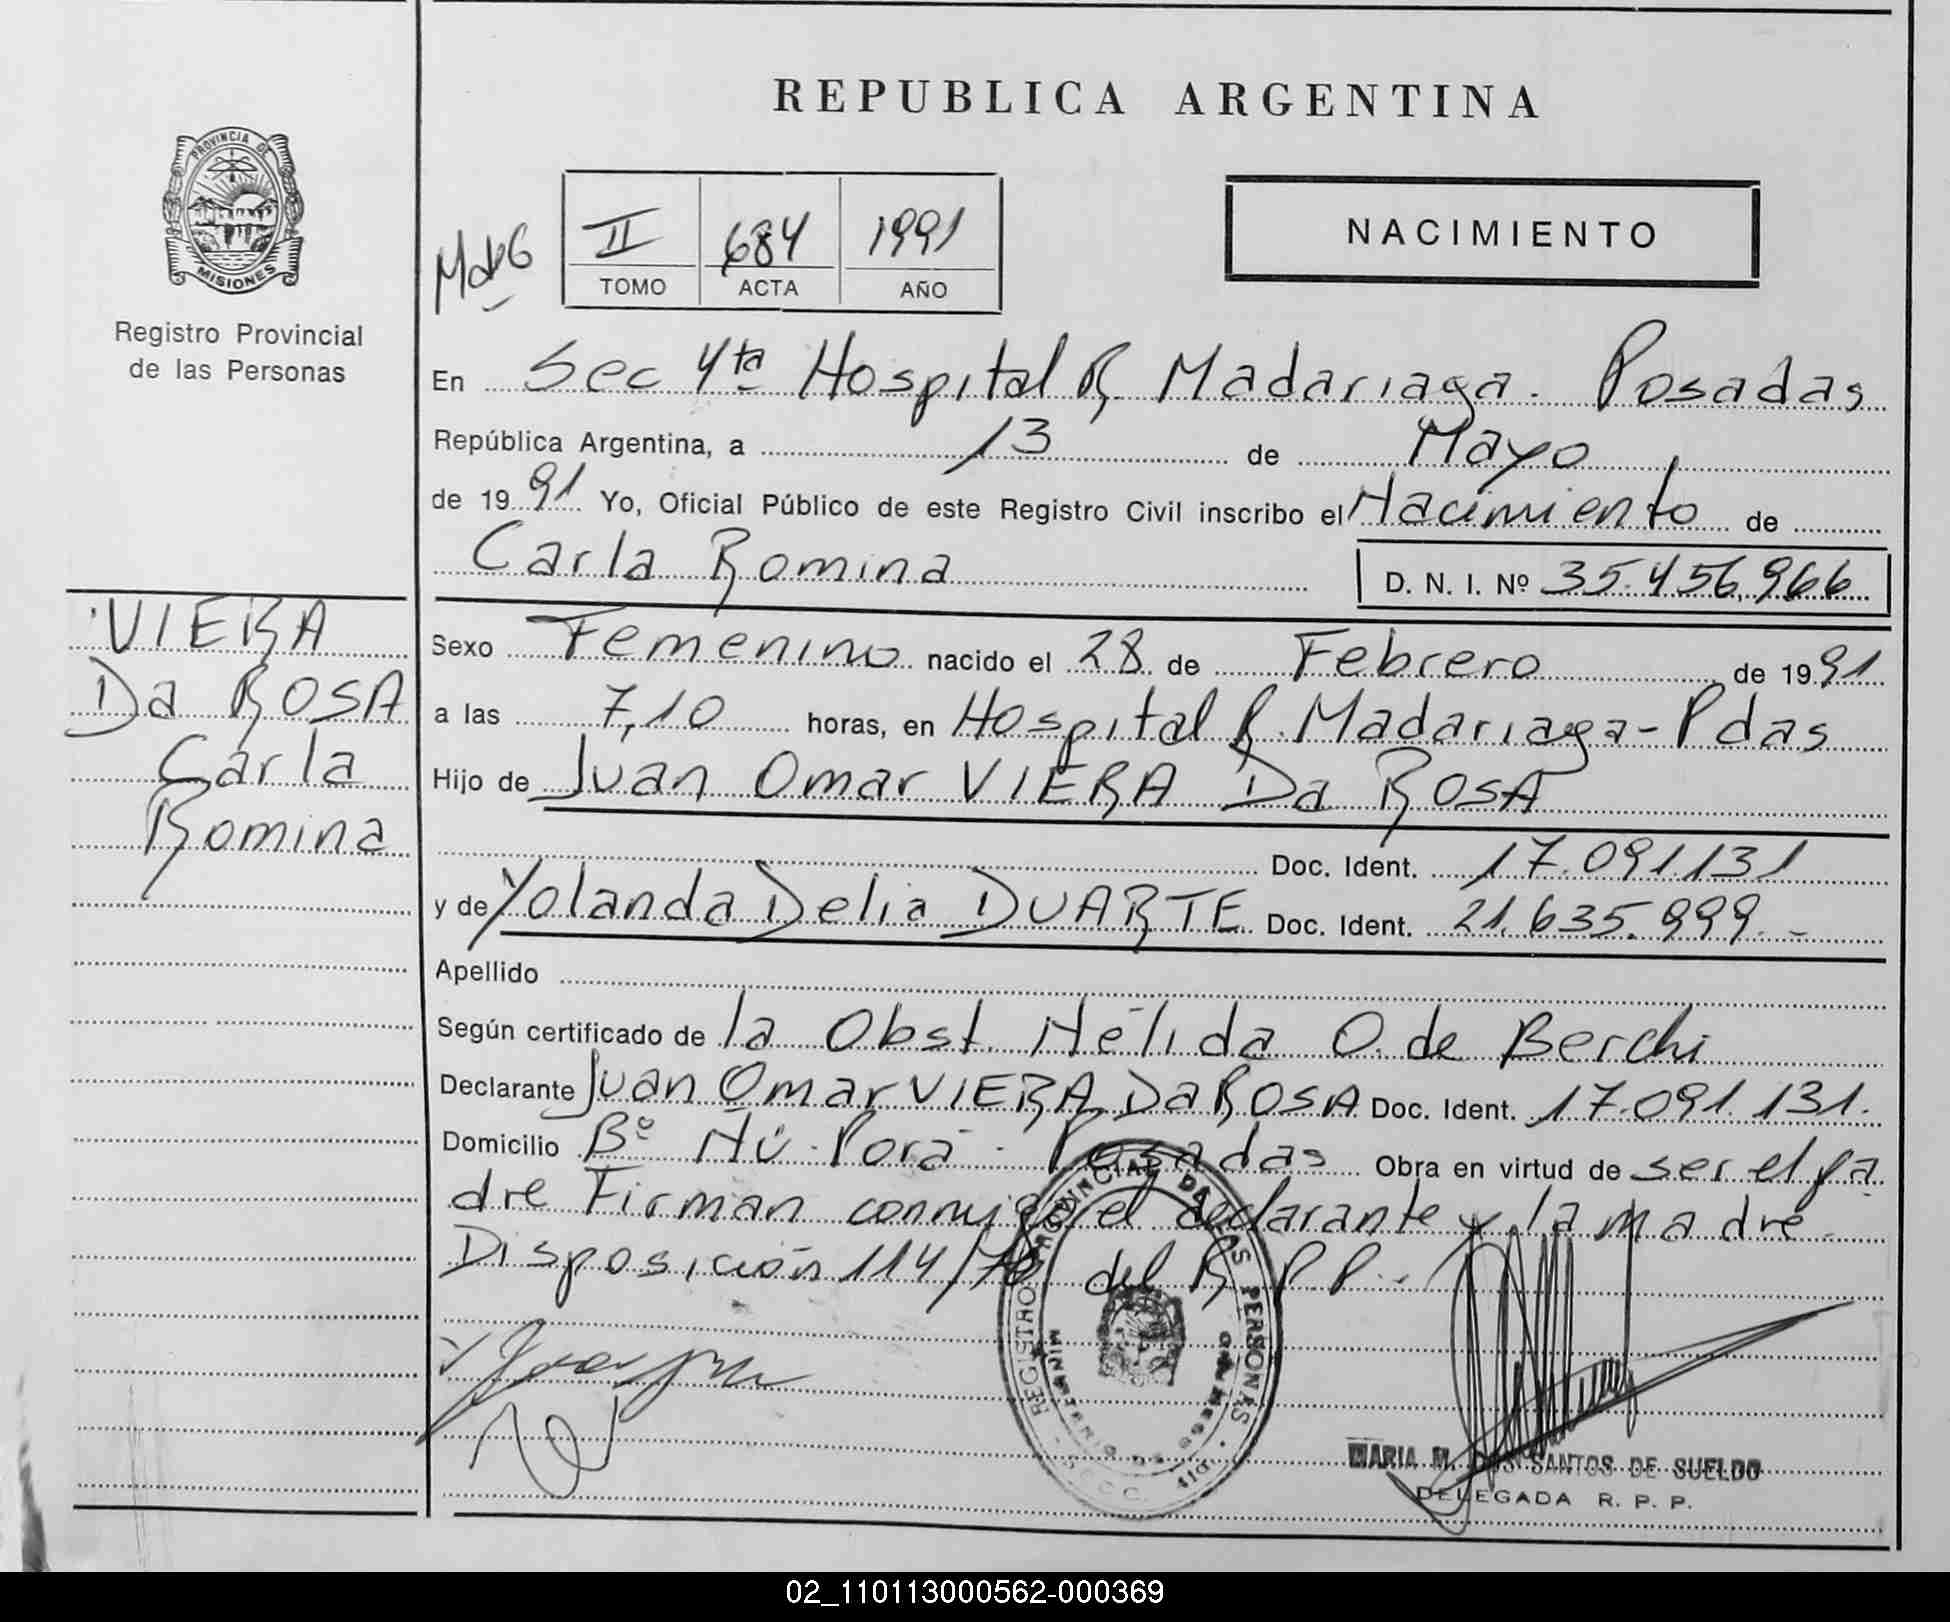 REPUBLICA ARGENTINA
PROVINCIA DE
MISIONES
Registro Provincial
de las Personas
NACIMIENTO
II 684 1991
TOMO ACTA AÑO
En Sec 4ta Hospital R. Madariaga. Posadas
República Argentina, a 13 de Mayo
de 1991 Yo, Oficial Público de este Registro Civil inscribo el Nacimiento de
Carla Romina D. N. I. Nº 35.456.966
VIERA
Da ROSA
Carla
Romina
Sexo Femenino nacido el 28 de Febrero de 1991
a las 7,10 horas, en Hospital R. Madariaga - Pdas
Hijo de Juan Omar VIERA Da ROSA
Doc. Ident. 17.091.131
y de Yolanda Delia DUARTE Doc. Ident. 21.635.999.-
Apellido
Según certificado de la Obst. Nélida O. de Berchi
Declarante Juan Omar VIERA Da ROSA Doc. Ident. 17.091.131.
Domicilio Bº Ñú-Porá - Posadas Obra en virtud de ser el pa
dre Firman conmigo el declarante y la madre.
Disposición 114/ del R.P.P.-
REGISTRO PROVINCIAL DE LAS PERSONAS
MARIA M. DOS SANTOS DE SUELDO
DELEGADA R. P. P.
02_110113000562-000369